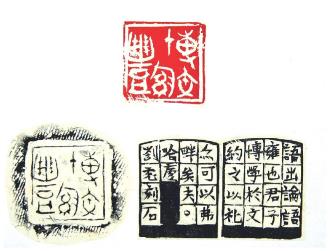 博文
約
豊
博文
約
豊
語出論語
雍也君子
博學於文
約之以礼
亦可以弗
畔矣夫
刻石